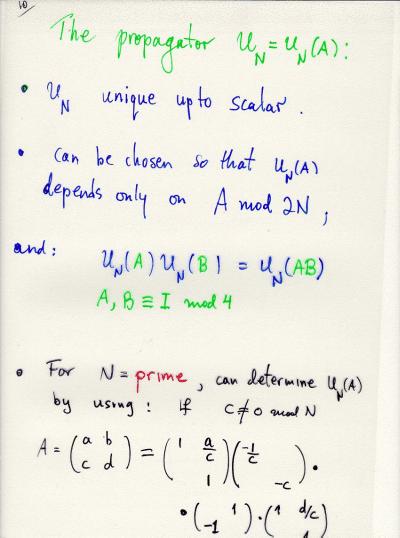 10
The propagator U_N = U_N(A):
• U_N unique up to scalar.
• Can be chosen so that U_N(A)
depends only on A mod 2N,
and: U_N(A) U_N(B) = U_N(AB)
A, B ≡ I mod 4
• For N = prime, can determine U_N(A)
by using: if c ≠ 0 mod N
A = (a b; c d) = (1 a/c; 1)(-1/c; -c) •
• (1; -1) • (1 d/c; 1)